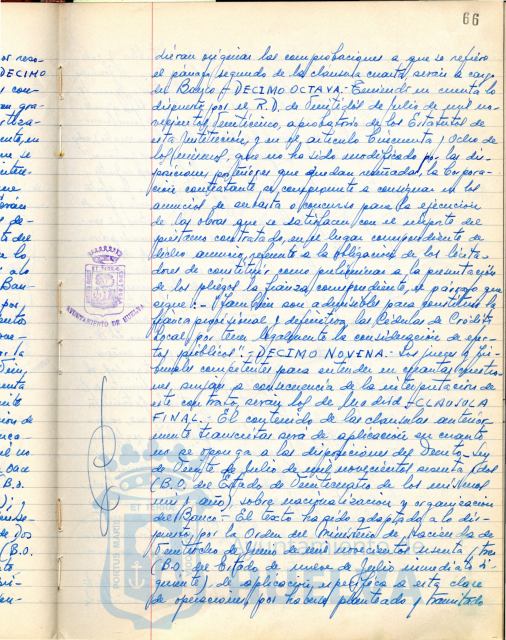 66
dieran originar las comprobaciones a que se refiere
el párrafo segundo de la clausula cuarta, serán a cargo
del Banco.- DECIMO OCTAVA.- Teniendo en cuenta lo
dispuesto por el R.D. de Veintidos de Julio de mil no-
vecientos Veinticinco, aprobatorio de los Estatutos de
esta Institución, y en su artículo Cincuenta y Ocho de
los mismos, que no ha sido modificado por las dis-
posiciones posteriores que quedan reseñadas, la Corpora-
ción contratante se compromete a consignar en los
anuncios de subasta o concurso para la ejecución
de las obras que se satisfagan con el importe del
préstamo contratado, en el lugar correspondiente de
dicho anuncio, referente a la obligación de los licita-
dores de constituir como preliminar a la presentación
de los pliegos la fianza correspondiente, el párrafo que
sigue: - "También son admisibles para constituir la
fianza provisional y definitiva las Cédulas de Crédito
Local por tener legalmente la consideración de efec-
tos públicos".- DECIMO NOVENA.- Los jueces y Tri-
bunales competentes para entender en cuantas cuestio-
nes surjan a consecuencia de la interpretación de
este contrato, serán los de Madrid.- CLAUSULA
FINAL.- El contenido de las clausulas anterior-
mente transcritas será de aplicación en cuanto
no se oponga a las disposiciones del Decreto-Ley
de Veinte de Julio de mil novecientos sesenta y dos
(B.O. del Estado de Veinticuatro de los mismos
mes y año), sobre nacionalización y organización
del Banco.- El texto ha sido adaptado a lo dis-
puesto por la Orden del Ministerio de Hacienda de
Veintiocho de Junio de mil novecientos sesenta y tres
(B.O. del Estado de nueve de Julio inmediato si-
guiente), de aplicación específica a esta clase
de operaciones, por haberse planteado y tramitado
AYUNTAMIENTO DE HUELVA
DECIMO
Ayuntamiento de
HUELVA
PORTUS MARIS